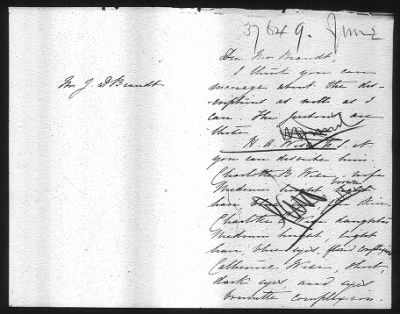 37649. June
Mr. J. D Brandt
Dear Mr Brandt,
I think you can
manage about the des-
criptions as well as I
can. The persons are
these
H. A. Wise
you can describe him.
Charlotte B. Wise, wife
Medium height
hair
Charlotte Wise daughter
Medium height light
hair blue eyes, fair complexion
Catherine Wise, short,
dark eyes and eyes
brunette complexion.